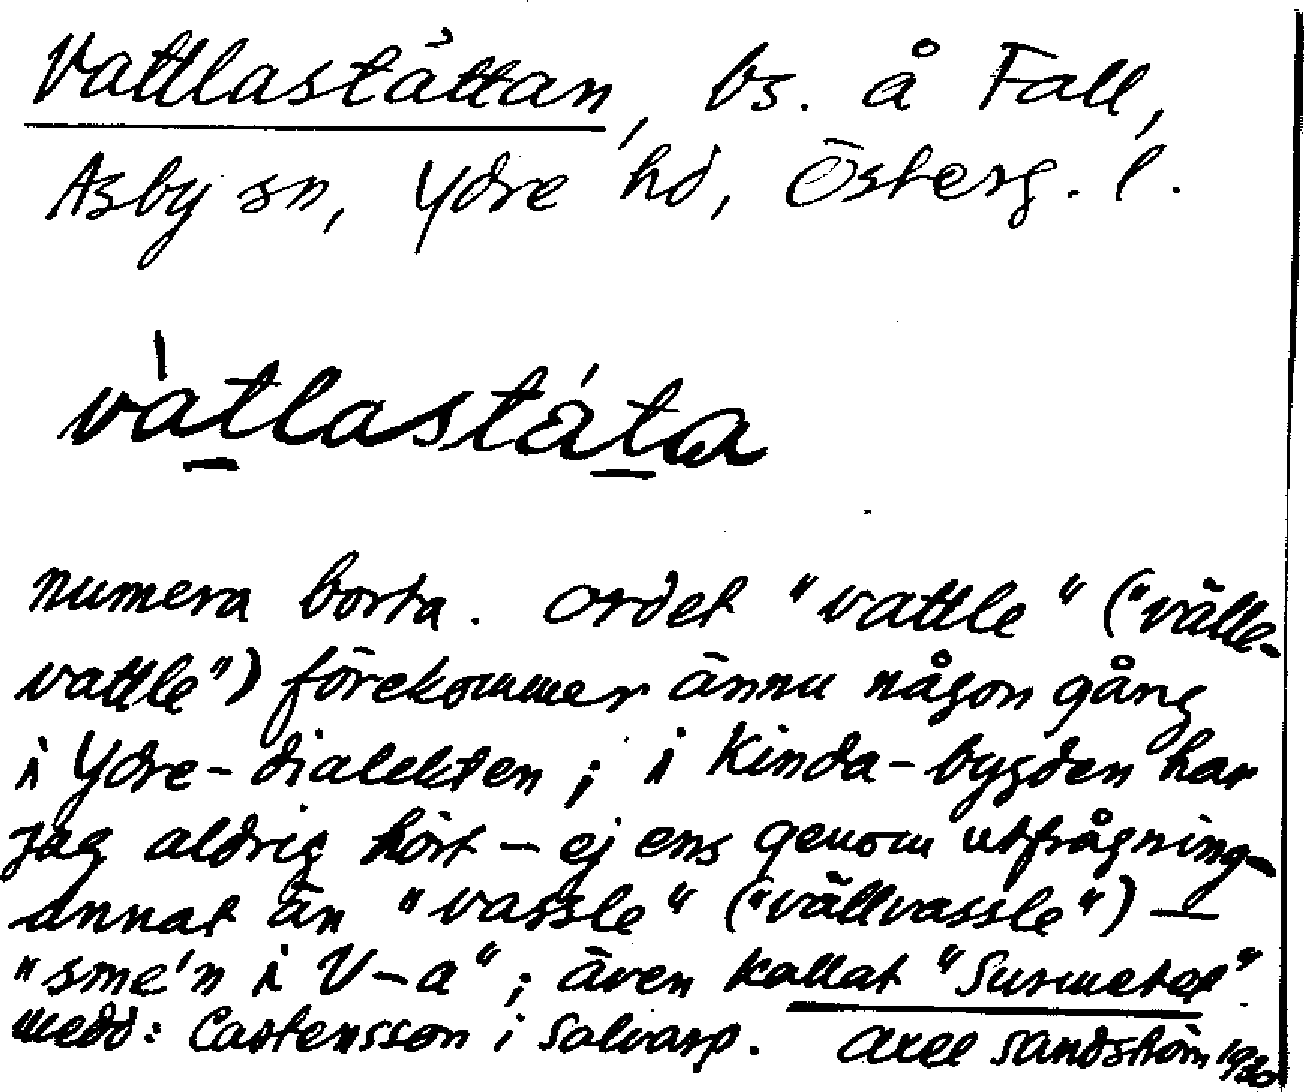 Vattlaståttan, bs. å Fall,
Asby sn, Ydre hd, Österg. l.
vatlaståta
numera borta. Ordet "vattle" ("välle-
vattle") förekommer ännu någon gång
i Ydre-dialekten; i Kinda-bygden har
jag aldrig hört – ej ens genom utfrågning –
annat än "vassle" ("vällvassle") –
"sme'n i V-a"; även kallat "Surmetet"
medd: Castensson i Salvarp. Axel Sandström